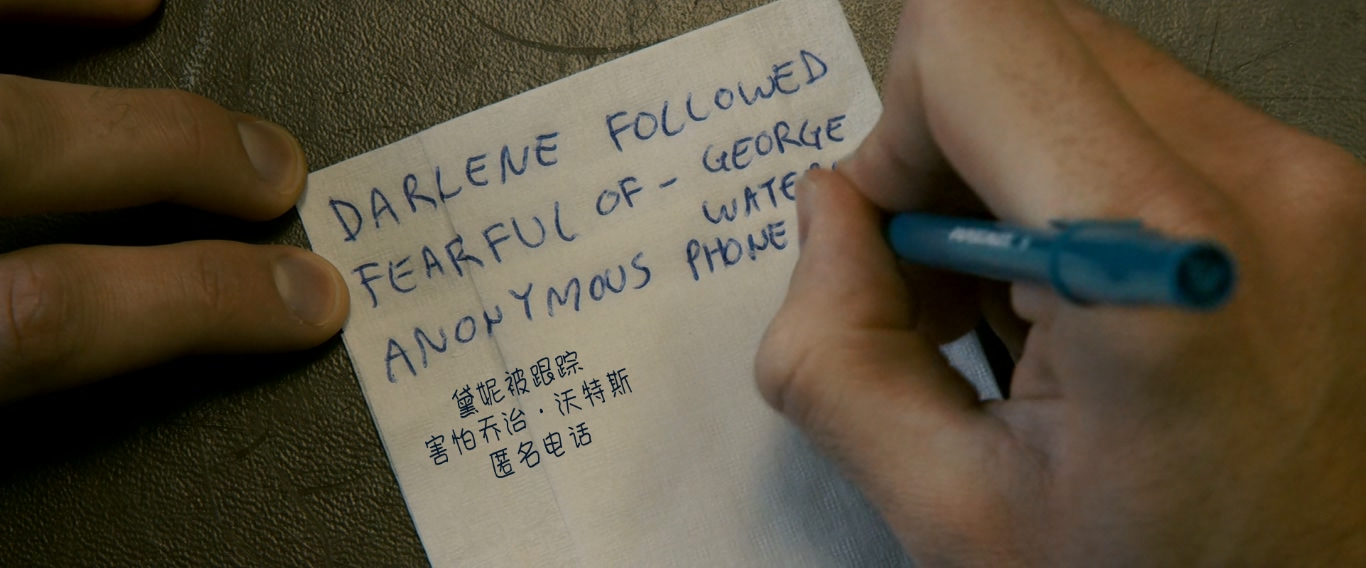 DARLENE FOLLOWED
FEARFUL OF - GEORGE
ANONYMOUS PHONE
黛妮被跟踪
害怕乔治·沃特斯
匿名电话